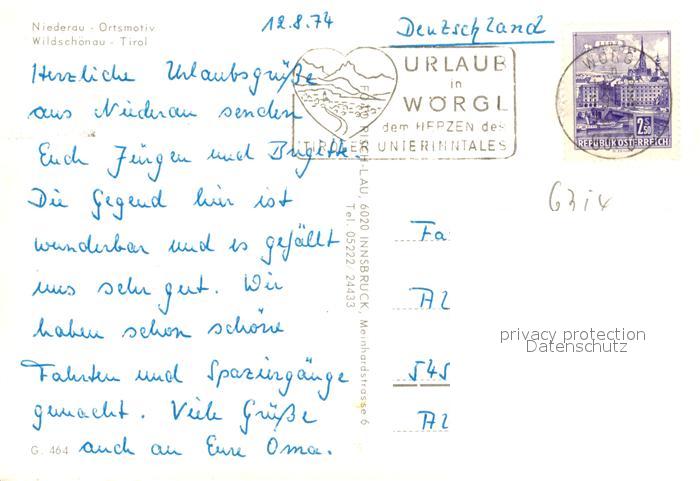 Niederau - Ortsmotiv
Wildschönau - Tirol
12.8.74
Deutschland
Herzliche Urlaubsgrüße
aus Niederau senden
Euch Jürgen und Brigitte.
Die Gegend hier ist
wunderbar und es gefällt
uns sehr gut. Wir
haben schon schöne
Fahrten und Spaziergänge
gemacht. Viele Grüße
auch an Eure Oma.
G. 464
URLAUB
in
WÖRGL
dem HERZEN des
TIROLER UNTERINNTALES
WÖRGL
2S50
REPUBLIK ÖSTERREICH
LAU, 6020 INNSBRUCK, Meinhardstrasse 6
Tel. 05222 24433
Fa
Al
545
Al
privacy protection
Datenschutz